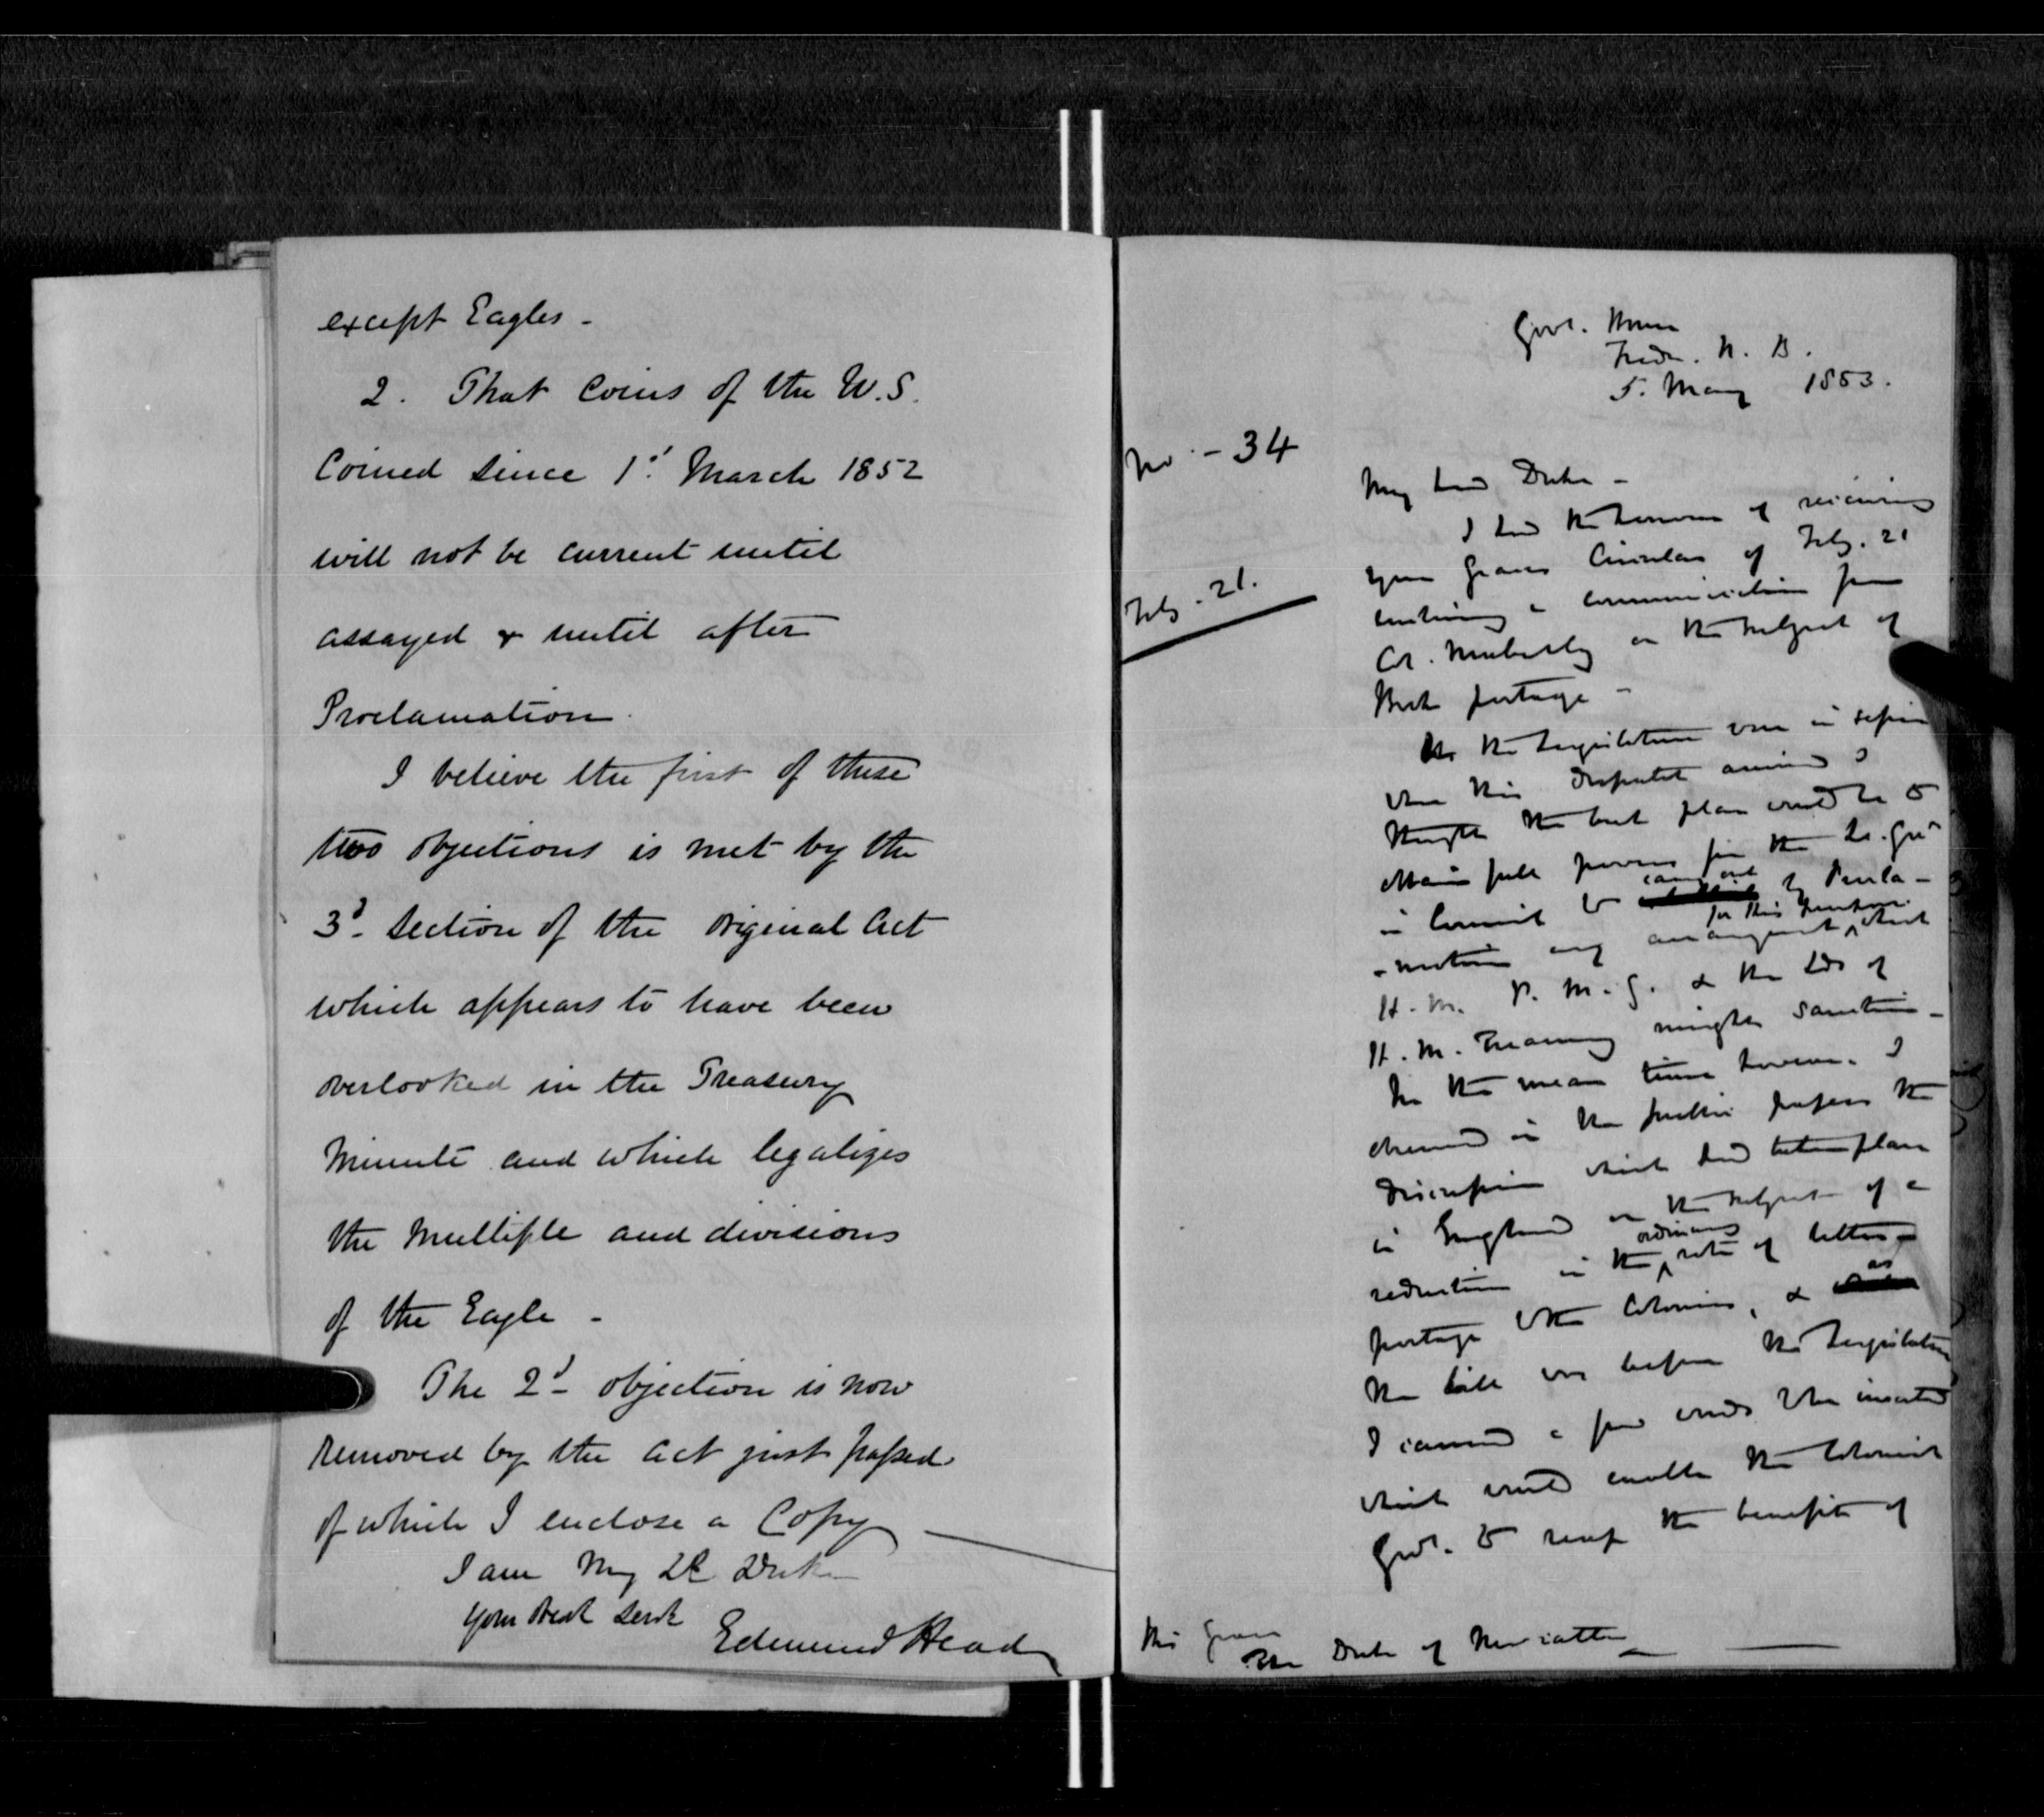 except Eagles -
2. That Coins of the U.S.
Coined since 1st March 1852
will not be current until
assayed & until after
Proclamation.
I believe the first of these
two objections is met by the
3d section of the original Act
which appears to have been
overlooked in the Treasury
Minute and which legalizes
the Multiple and divisions
of the Eagle -
The 2d objection is now
removed by the Act just passed
of which I enclose a Copy
I am My Ld Duke
Your Obdt Servt
Edmund Head
Govt. House
Fredn. N. B.
5. May 1853.
No - 34
My Lord Duke -
I had the honour of receiving
Feb. 21.
your Grace's Circular of Feb. 21
enclosing a communication from
Col. Maberly on the subject of
Book postage -
As the Legislature was in session
when this Despatch arrived I
thought the best plan would be to
obtain full powers for the Lt. Govr
in Council to carry out by Procla-
-mation any arrangement for this purpose which
H. M. P. M. G. & the Lds of
H. M. Treasury might sanction -
In the mean time however I
observed in the public papers the
Discussion which had taken place
in England on the subject of a
reduction in the ordinary rate of letter -
postage to the Colonies, & as
the bill was before the Legislature
I caused a few words to be inserted
which would enable the Colonial
Govt. to reap the benefit of
His Grace
The Duke of Newcastle